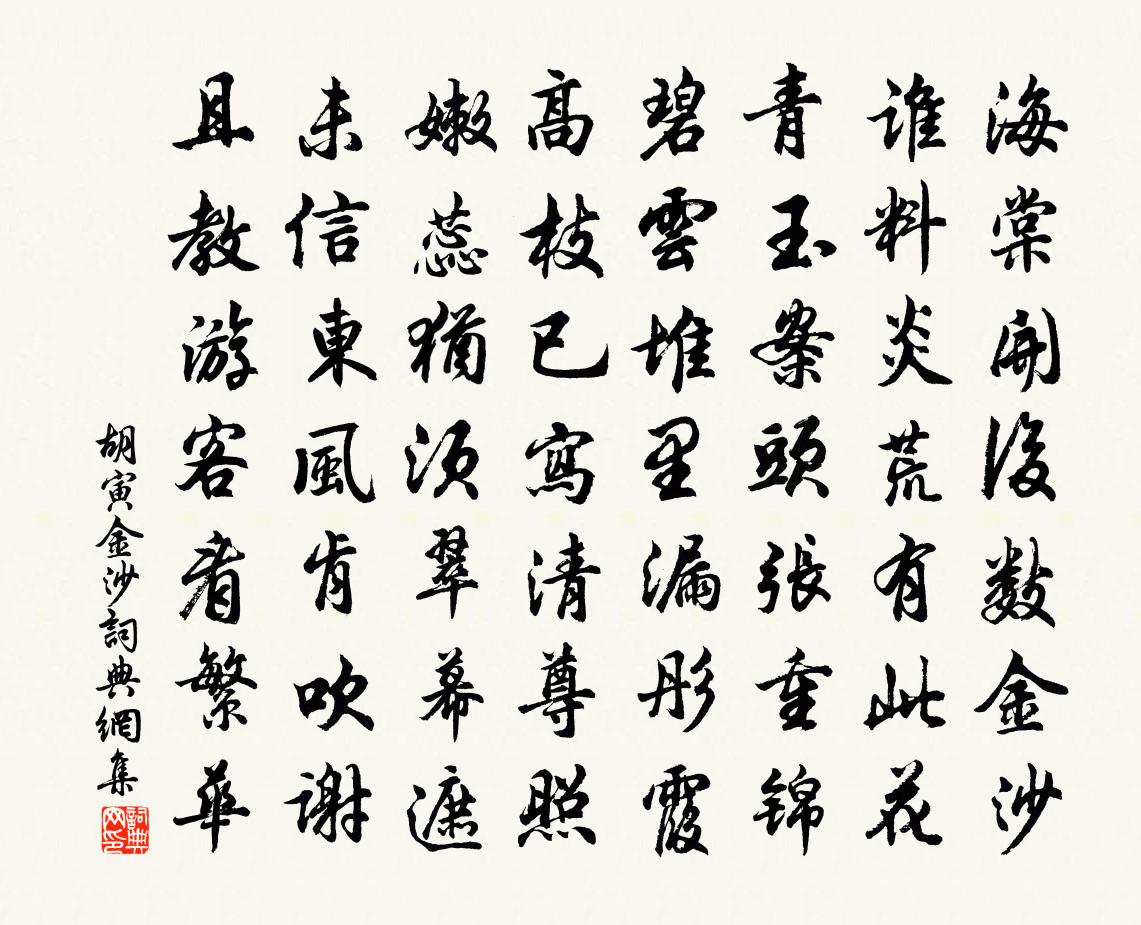 海棠開後數金沙
誰料炎荒有此花
青玉案頭張重錦
碧雲堆里漏彤霞
高枝已寫清尊照
嫩蕊猶須翠幕遮
未信東風肯吹謝
且教游客看繁華
胡寅金沙詞典網集
詞典網印